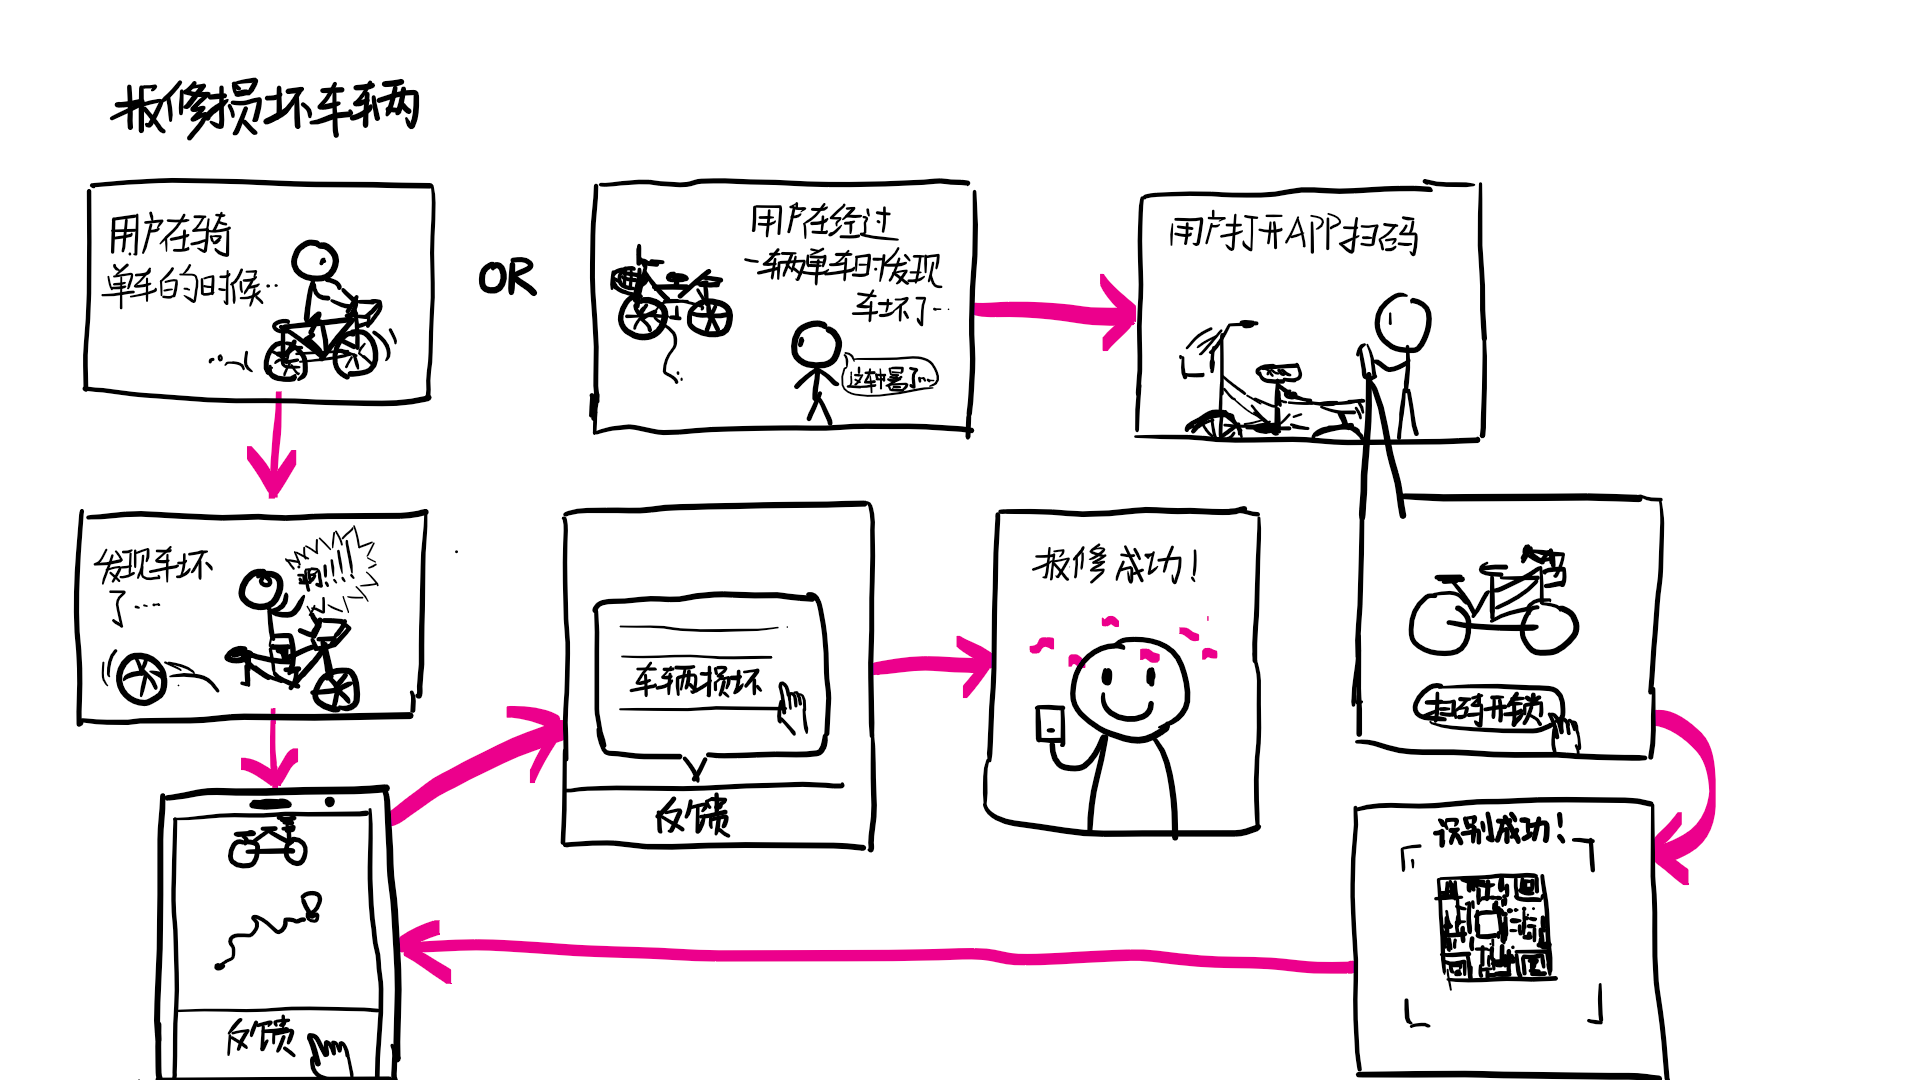 报修损坏车辆
用户在骑
单车的时候…
OR
用户在经过
一辆单车时发现
车坏了…
这车中暑了…
用户打开APP扫码
发现车坏
了…
啊!!!!
车辆损坏
反馈
报修成功!
扫码开锁
识别成功!
反馈